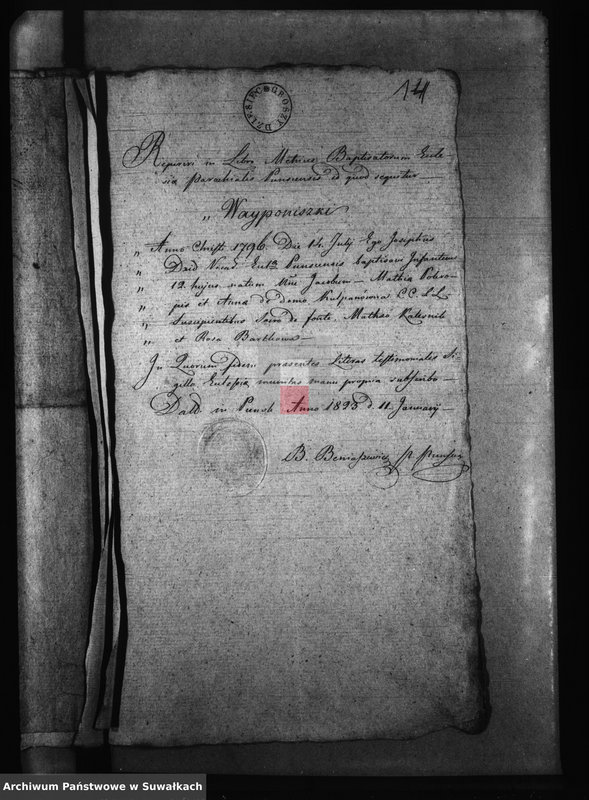 14
DZIESIĘC GROSZY
Reperitur in Libro Metrices Baptisatorum Eccle-
sia Parochialis Punscensis id quod sequitur
„ Wayponiszki
„ Anno Christi 1796. Die 14 July Ego Josephus
„ Daid baptisavi Infantem
„ 12 hujus natum Jacobum - Mathia Pokro-
„ pis et Anna de domo Kulpanowia C.C. L.L.
„ Suscipientibus Sacro de fonte Matheo Kalesnik
„ et Rosa Barthowa -
In Quorum fidem praesentes Literas testimoniales Si-
gillo Ecclesiae munitas manu propria subscribo -
Datt in Punsk Anno 1823 d. 11 January
B. Beniaszewicz
Archiwum Państwowe w Suwałkach